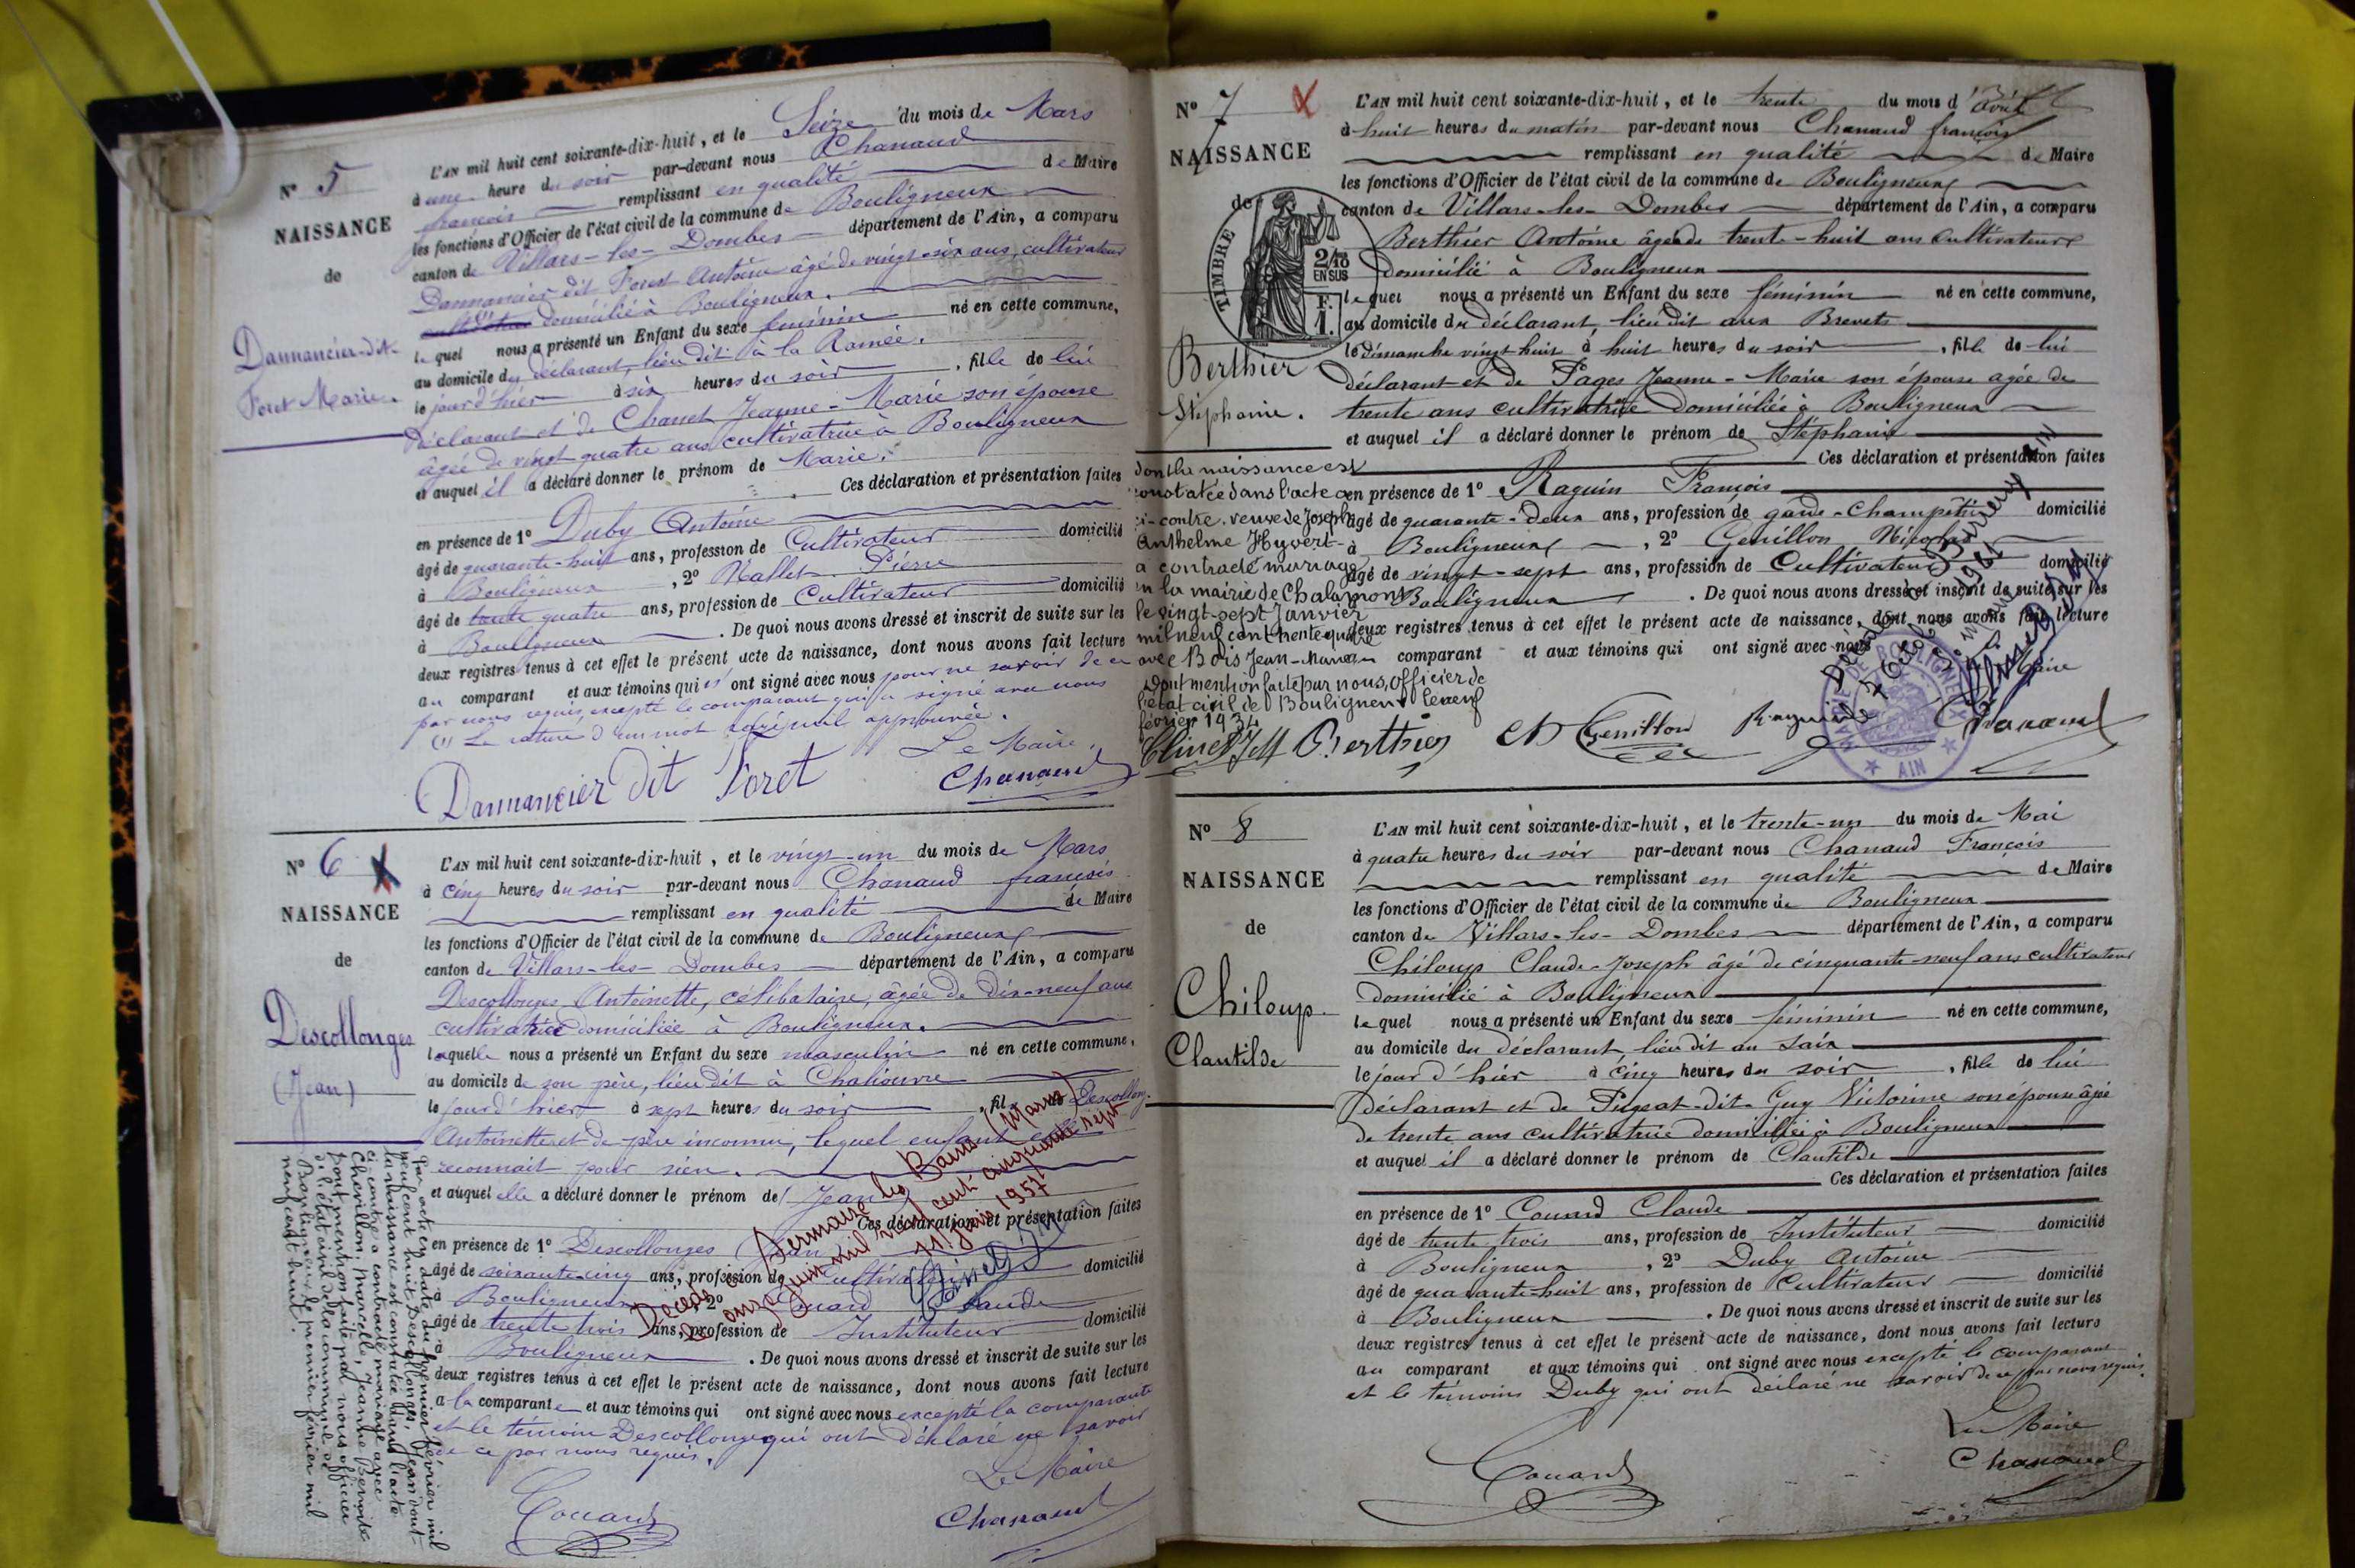 N° 5
NAISSANCE
de
Dannancier-dit-
Foret Marie.
L'AN mil huit cent soixante-dix-huit, et le Seize du mois de Mars
à une heure du soir par-devant nous Chanaud
françois remplissant en qualité de Maire
les fonctions d'Officier de l'état civil de la commune de Bouligneux
canton de Villars-les-Dombes département de l'Ain, a comparu
Dannancier dit Foret Antoine âgé de vingt-six ans, cultivateur
domicilié à Bouligneux.
lequel nous a présenté un Enfant du sexe féminin né en cette commune,
au domicile du déclarant, lieu dit à la Ramée.
le jour d'hier à six heures du soir, fille de lui
déclarant et de Chanel Jeanne-Marie son épouse
âgée de vingt quatre ans, cultivatrice à Bouligneux
et auquel il a déclaré donner le prénom de Marie.
Ces déclaration et présentation faites
en présence de 1° Duby Antoine
âgé de quarante-huit ans, profession de Cultivateur domicilié
à Bouligneux, 2° Mallet Pierre
âgé de trente quatre ans, profession de Cultivateur domicilié
à Bouligneux. De quoi nous avons dressé et inscrit de suite sur les
deux registres tenus à cet effet le présent acte de naissance, dont nous avons fait lecture
au comparant et aux témoins qui ont signé avec nous pour ne savoir de ce
par nous requis, excepté le comparant qui a signé avec nous
(1) La rature d'un mot approuvée.
Le Maire,
Dannancier dit Foret
Chanaud
N° 6
NAISSANCE
de
Descollonges
(Jean)
L'AN mil huit cent soixante-dix-huit, et le vingt-un du mois de Mars
à cinq heures du soir par-devant nous Chanaud françois
remplissant en qualité de Maire
les fonctions d'Officier de l'état civil de la commune de Bouligneux
canton de Villars-les-Dombes département de l'Ain, a comparu
Descollonges Antoinette, célibataire, âgée de dix-neuf ans
cultivatrice domiciliée à Bouligneux.
laquelle nous a présenté un Enfant du sexe masculin né en cette commune,
au domicile de son père, lieu dit à Chaliouvre
le jour d'hier à sept heures du soir, fils de Descollonges
Antoinette et de père inconnu, lequel enfant elle
reconnait pour sien.
et auquel elle a déclaré donner le prénom de Jean
Ces déclaration et présentation faites
en présence de 1° Descollonges Jean
âgé de soixante-cinq ans, profession de Cultivateur domicilié
à Bouligneux, 2° Couard Claude
âgé de trente trois ans, profession de Instituteur domicilié
à Bouligneux. De quoi nous avons dressé et inscrit de suite sur les
deux registres tenus à cet effet le présent acte de naissance, dont nous avons fait lecture
a la comparante et aux témoins qui ont signé avec nous excepté la comparante
et le témoin Descollonges qui ont déclaré ne savoir
de ce par nous requis.
Le Maire
Couard
Chanaud
Par acte en date du premier février mil
neuf cent huit, Descollonges, Jean dont
la naissance est constatée dans l'acte
ci-contre a contracté mariage avec
Chevillon Marcelle, Jeanne Bernoite
dont mention faite par nous officier
de l'état civil de la commune de
Bouligneux le premier février mil
neuf cent huit.
Décédé à Sermaize les Bains (Marne)
le onze juin mil neuf cent cinquante sept
juin 1957
N° 7
NAISSANCE
de
TIMBRE
2/10
EN SUS
F.
1.
Berthier
Stéphanie.
L'AN mil huit cent soixante-dix-huit, et le trente du mois d'Avril
à huit heures du matin par-devant nous Chanaud françois
remplissant en qualité de Maire
les fonctions d'Officier de l'état civil de la commune de Bouligneux
canton de Villars-les-Dombes département de l'Ain, a comparu
Berthier Antoine âgé de trente-huit ans cultivateur
domicilié à Bouligneux
lequel nous a présenté un Enfant du sexe féminin né en cette commune,
au domicile du déclarant, lieu dit aux Brevets
le Dimanche vingt huit à huit heures du soir, fille de lui
déclarant et de Pages Jeanne-Marie son épouse agée de
trente ans cultivatrice domiciliée à Bouligneux
et auquel il a déclaré donner le prénom de Stéphanie
Ces déclaration et présentation faites
en présence de 1° Raguin François
âgé de quarante-deux ans, profession de garde-Champêtre domicilié
à Bouligneux, 2° Genillon Nicolas
âgé de vingt-sept ans, profession de Cultivateur domicilié
à Bouligneux. De quoi nous avons dressé et inscrit de suite sur les
deux registres tenus à cet effet le présent acte de naissance, dont nous avons fait lecture
au comparant et aux témoins qui ont signé avec nous
dont la naissance est
constatée dans l'acte
ci-contre, veuve de Joseph
Anthelme Hyvert
a contracté mariage
en la mairie de Chalamont
le vingt-sept Janvier
mil neuf cent trente quatre
avec Bois Jean-Marie
Dont mention faite par nous, officier de
l'état civil de Bouligneux le neuf
février 1934
Berthier
Genillon
Raguin
Chanaud
MAIRIE DE BOULIGNEUX
AIN
Maire
N° 8
NAISSANCE
de
Chiloup
Clautilde
L'AN mil huit cent soixante-dix-huit, et le trente-un du mois de Mai
à quatre heures du soir par-devant nous Chanaud François
remplissant en qualité de Maire
les fonctions d'Officier de l'état civil de la commune de Bouligneux
canton de Villars-les-Dombes département de l'Ain, a comparu
Chiloup Claude-Joseph âgé de cinquante-neuf ans cultivateur
domicilié à Bouligneux
lequel nous a présenté un Enfant du sexe féminin né en cette commune,
au domicile du déclarant, lieu dit au Saix
le jour d'hier à cinq heures du soir, fille de lui
déclarant et de Pugeat-dit-Guy Victorine son épouse âgée
de trente ans cultivatrice domiciliée à Bouligneux
et auquel il a déclaré donner le prénom de Clautilde
Ces déclaration et présentation faites
en présence de 1° Couard Claude
âgé de trente trois ans, profession de Instituteur domicilié
à Bouligneux, 2° Duby Antoine
âgé de quarante-huit ans, profession de Cultivateur domicilié
à Bouligneux. De quoi nous avons dressé et inscrit de suite sur les
deux registres tenus à cet effet le présent acte de naissance, dont nous avons fait lecture
au comparant et aux témoins qui ont signé avec nous excepté le comparant
et le témoins Duby qui ont déclaré ne savoir de ce par nous requis.
Le Maire
Couard
Chanaud